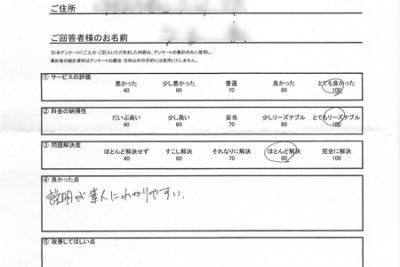 ご住所
ご回答者様のお名前
① サービスの評価
悪かった 少し悪かった 普通 良かった とても良かった
40 60 70 80 100
② 料金の納得性
だいぶ高い 少し高い 妥当 少しリーズナブル とてもリーズナブル
40 60 70 80 100
③ 問題解決度
ほとんど解決せず すこし解決 それなりに解決 ほとんど解決 完全に解決
40 60 70 80 100
④ 良かった点
説明が素人にわかりやすい。
⑤ 改善してほしい点